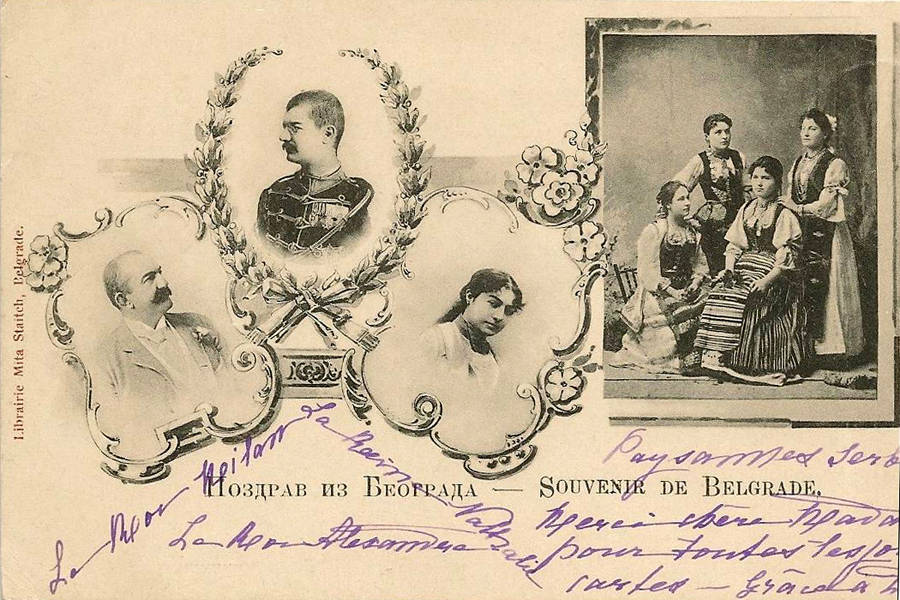 Librairie Mita Staitch, Belgrade.
Поздрав из Београда — Souvenir de Belgrade.
Le Roi Milan
La Reine Nathalie
Le Roi Alexandre
Paysannes Serb
Merci chère Mada
pour toutes les jo
cartes — Grâce à